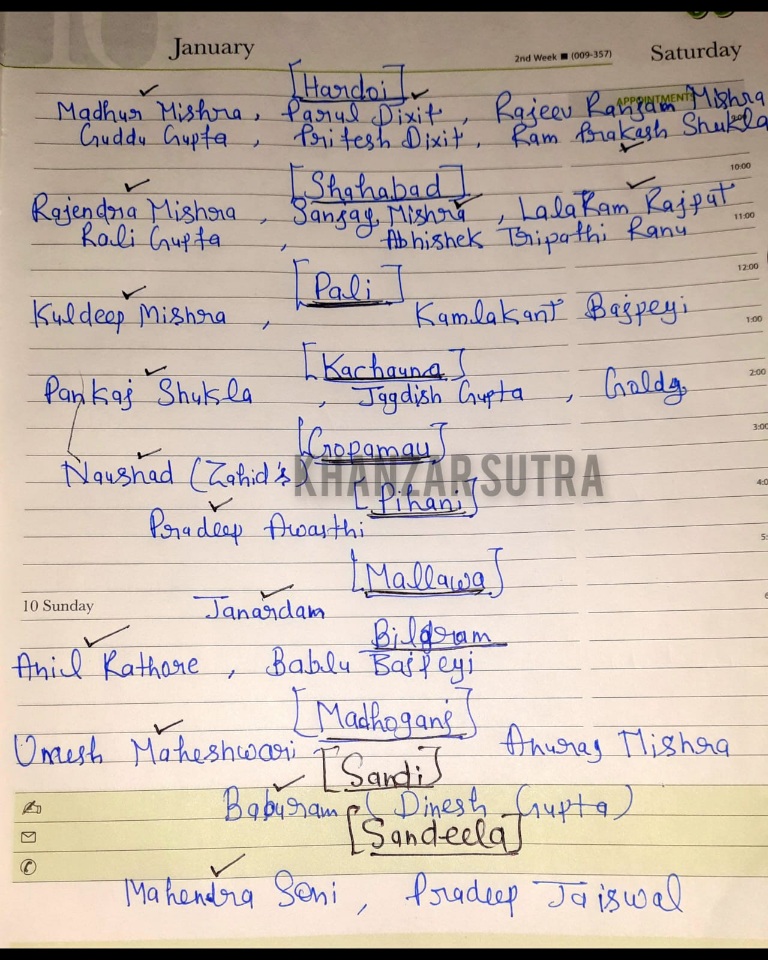 January
2nd Week ■ (009-357)
Saturday
[Hardoi]
APPOINTMENTS
Madhur Mishra, Parul Dixit, Rajeev Ranjam Mishra
Guddu Gupta, Pritesh Dixit, Ram Prakash Shukla
10:00
[Shahabad]
Rajendra Mishra, Sanjay Mishra, LalaRam Rajput
11:00
Rali Gupta, Abhishek Tripathi Ranu
12:00
[Pali]
Kuldeep Mishra, Kamlakant Bajpeyi
1:00
[Kachauna]
2:00
Pankaj Shukla, Jagdish Gupta, Goldy
3:00
[Gopamau]
Naushad (Zahid's)
KHANZARSUTRA
[Pihani]
Pradeep Awasthi
[Mallawa]
10 Sunday
Janardam
Bilgram
Anil Rathore, Bablu Bajpeyi
[Madhoganj]
Umesh Maheshwari Anurag Mishra
[Sandi]
Baburam (Dinesh Gupta)
[Sandeela]
Mahendra Soni, Pradeep Jaiswal